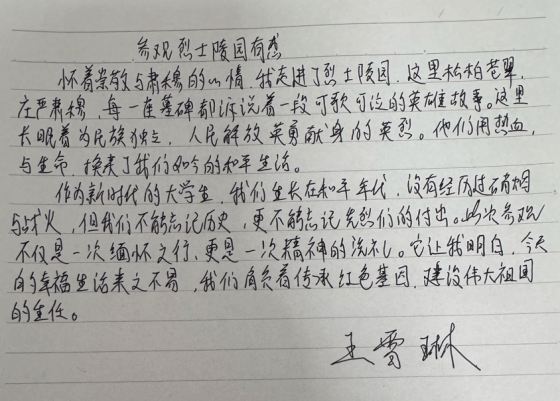 参观烈士陵园有感
怀着崇敬与肃穆的心情，我走进了烈士陵园，这里松柏苍翠，
庄严肃穆，每一座墓碑都诉说着一段可歌可泣的英雄故事。这里
长眠着为民族独立，人民解放英勇献身的英烈。他们用热血，
与生命，换来了我们如今的和平生活。
作为新时代的大学生，我们生长在和平年代，没有经历过硝烟
与战火，但我们不能忘记历史，更不能忘记先烈们的付出。此次参观
不仅是一次缅怀之行，更是一次精神的洗礼。它让我明白，今天
的幸福生活来之不易，我们肩负着传承红色基因，建设伟大祖国
的重任。
王雪琳